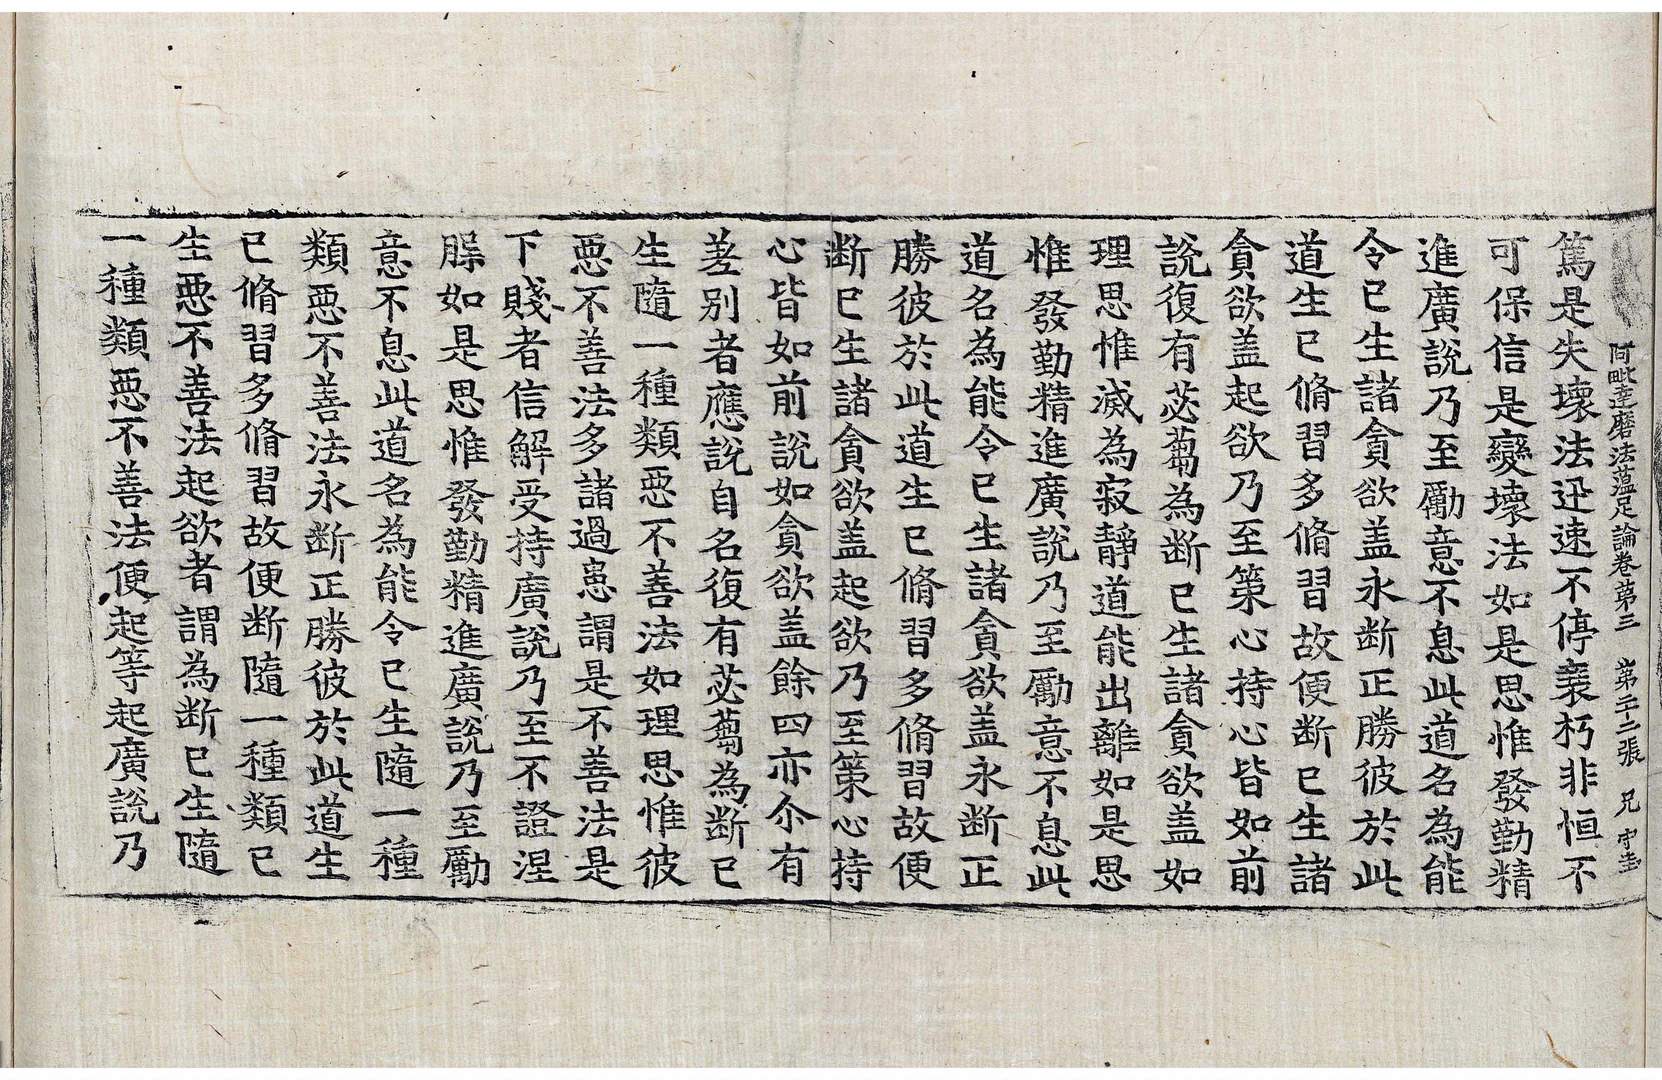 阿毗達磨法蘊足論卷第三 第二十二張 兄 守圭
篤是失壞法迅速不停衰朽非恒不
可保信是變壞法如是思惟發勤精
進廣說乃至勵意不息此道名為能
令已生諸貪欲盖永断正勝彼於此
道生已脩習多脩習故便断已生諸
貪欲盖起欲乃至策心持心皆如前
說復有苾蒭為断已生諸貪欲盖如
理思惟滅為寂靜道能出離如是思
惟發勤精進廣說乃至勵意不息此
道名為能令已生諸貪欲盖永断正
勝彼於此道生已脩習多脩習故便
断已生諸貪欲盖起欲乃至策心持
心皆如前說如貪欲盖餘四亦尒有
差別者應說自名復有苾蒭為断已
生隨一種類惡不善法如理思惟彼
惡不善法多諸過患謂是不善法是
下賤者信解受持廣說乃至不證涅
槃如是思惟發勤精進廣說乃至勵
意不息此道名為能令已生隨一種
類惡不善法永断正勝彼於此道生
已脩習多脩習故便断隨一種類已
生惡不善法起欲者謂為断已生隨
一種類惡不善法便起等起廣說乃